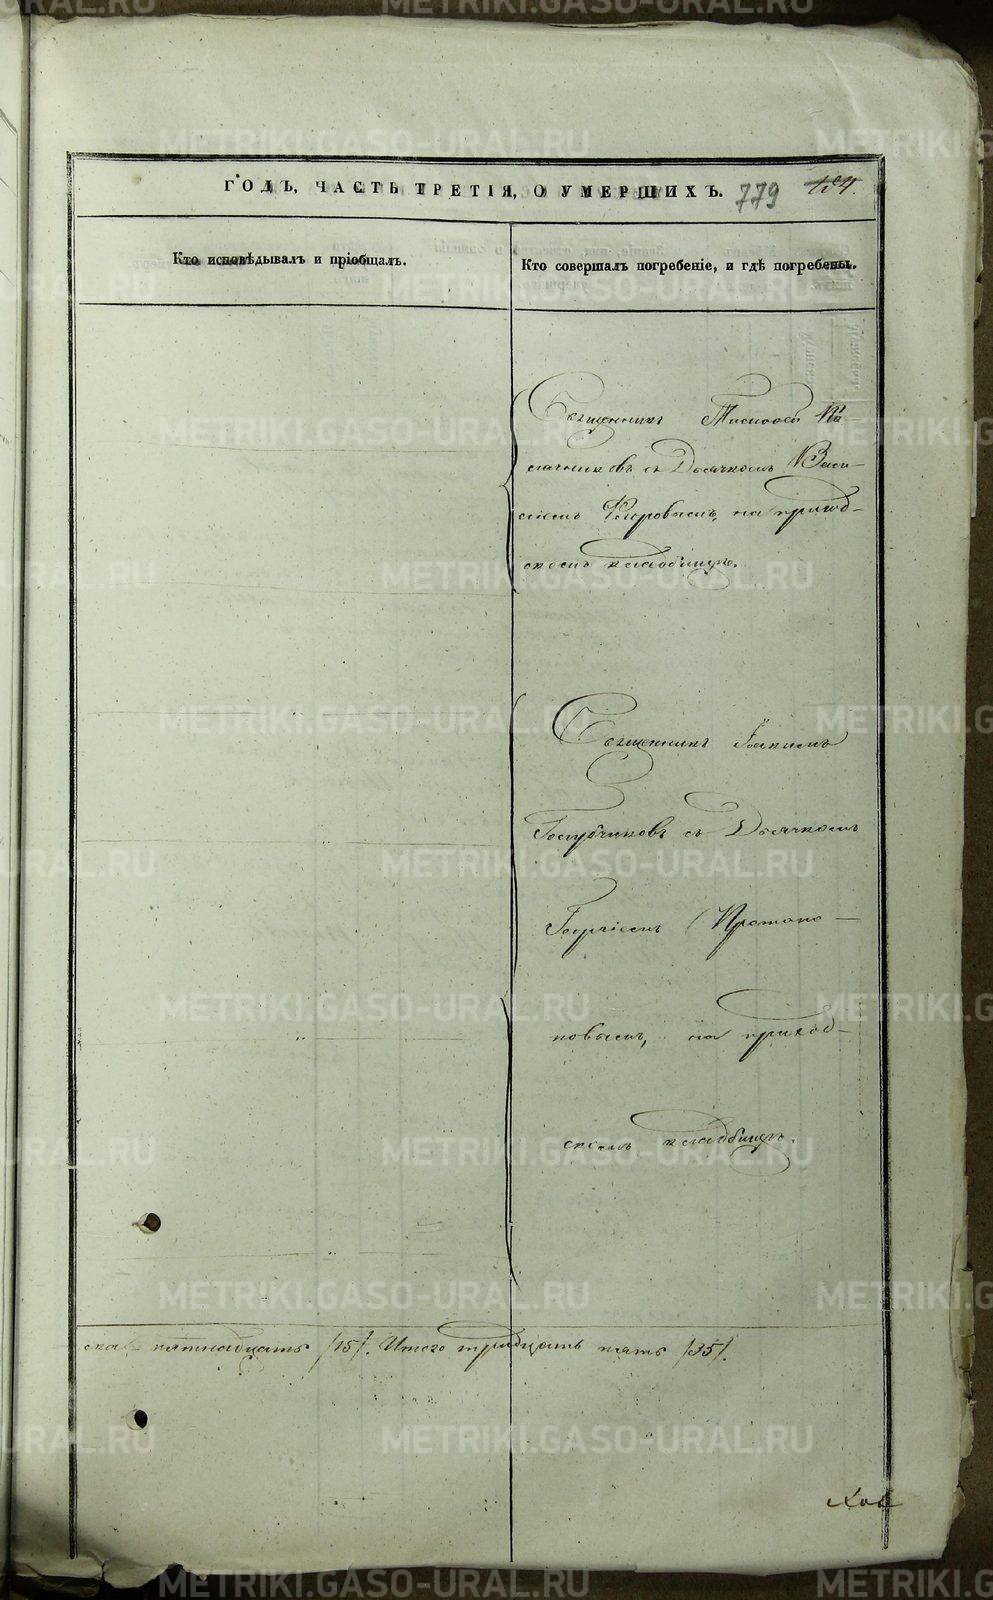 ГОДЪ, ЧАСТЬ ТРЕТІЯ, О УМЕРШИХЪ. 779
Кто исповѣдывалъ и пріобщалъ.
Кто совершалъ погребеніе, и гдѣ погребены.
Священникъ Тимофей
съ Дьячкомъ Васи-
ліемъ на приход-
скомъ кладбищѣ.
Священникъ Іоакимъ
Голубчиковъ съ Дьячкомъ
Георгіемъ Протопо-
повымъ, на приход-
скомъ кладбищѣ.
ска пятнадцать /15/. Итого тридцать пять /35/.
METRIKI.GASO-URAL.RU